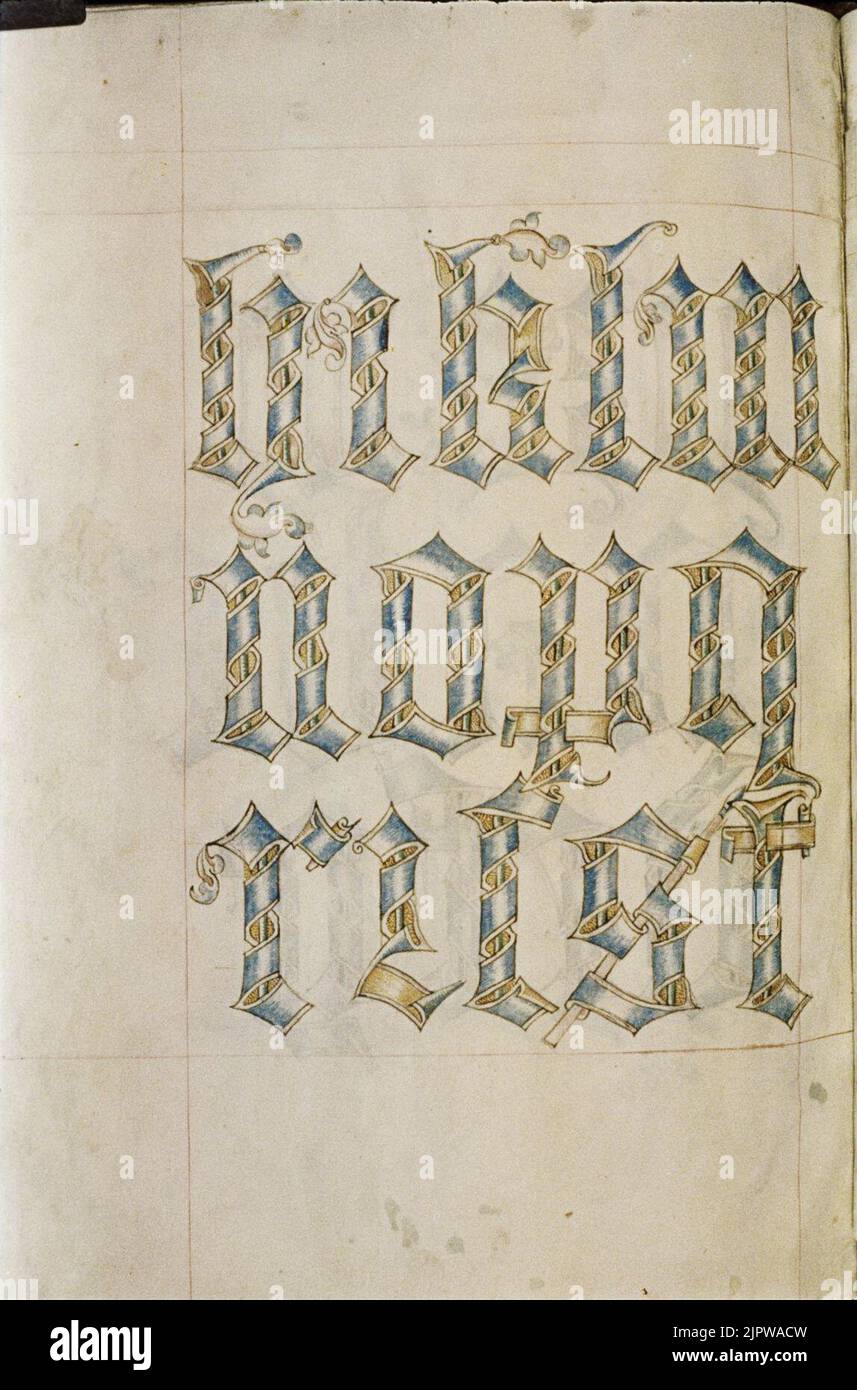 h i k l m
n o p q
r ꝛ ſ s t
alamy
Image ID: 2JPWACW
www.alamy.com